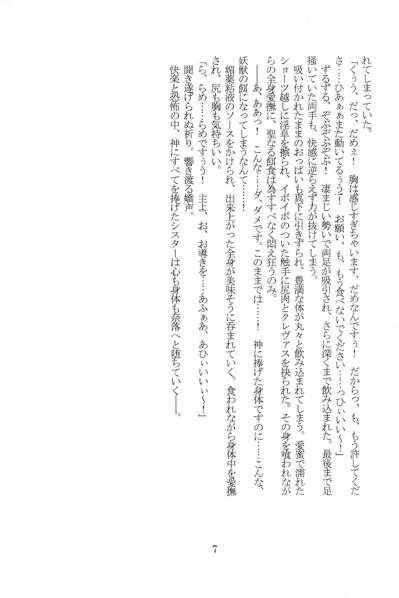 れてしまっていた。
「くぅう、だっ、だめぇ！　胸は感じすぎちゃいます、だめなんですぅ！　だからっ、も、もう許してくだ
さ……ひあぁぁまた動いてるぅぅ⁉　お願い、も、もう食べないでください……っひぃいい～！」
　ずるずる、ぞぶぞぶぞぶ！　凄まじい勢いで両足が吸引され、さらに深くまで飲み込まれた。最後まで足
掻いていた両手も、快感に逆らえず力が抜けてしまう。
　吸い付かれたままのおっぱいも真下に引きずられ、豊満な体が丸々と飲み込まれてしまう。愛蜜で濡れた
ショーツ越しに淫阜を擦られ、イボイボのついた触手に尻肉とクレヴァスを抉られた。その身を喰われなが
らの全身愛撫に、聖なる餌食は為すすべなく悶え狂うのみ。
　――あ、ああっ！　こんな……ダ、ダメです。このままでは……！　神に捧げた身体ですのに……こんな、
妖獣の餌になってしまうなんて……！
　媚薬粘液のソースをかけられ、出来上がった全身が美味そうに呑まれていく。食われながら身体中を愛撫
され、尻も胸も気持ちいい。
「ら、らめ……らめですぅう！　主よ、お、お導きを……あふぁぁあ、あひぃいいぃ～！」
　聞き遂げられぬ祈り。響き渡る嬌声。
　快楽と恐怖の中、神にすべてを捧げたシスターは心も身体も奈落へと堕ちていく――。
7